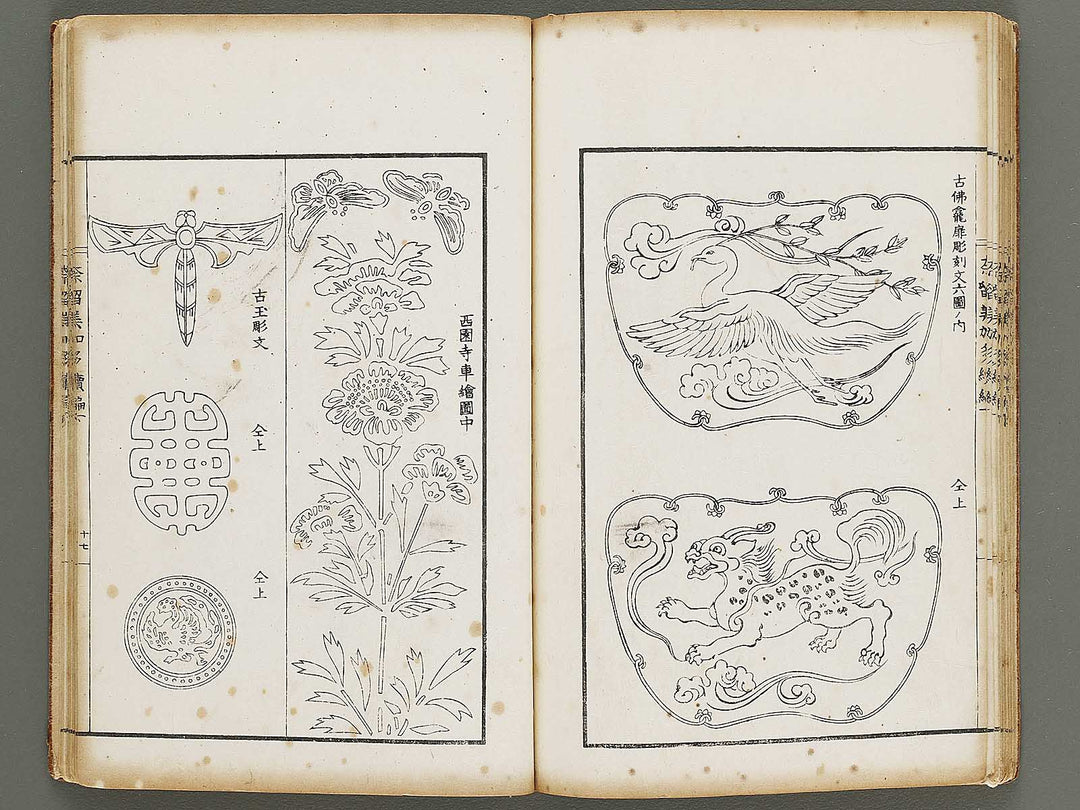 古佛龕扉彫刻文六圖ノ内
仝上
西園寺車繪圖中
古玉彫文
仝上
仝上
十七